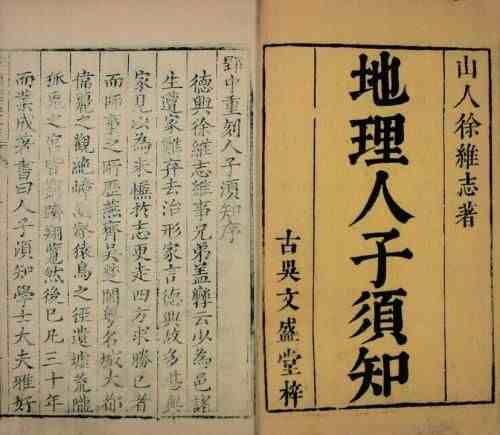 山人徐維志著
地理人子須知
古吳文盛堂梓
郢中重刻人子須知序
德興徐維志維事兄弟盖孿云少為邑諸
生遭家難弃去治形家言德興故多輿
家見以為未慊於志更走四方求勝己者
而師事之所歷燕齊吳楚閩粵名城大都
偉麗之觀絶猿鳥之徑遺墟荒隴
狐兎之翔覽然後已凡三十年
而業成書曰人子須知學士大夫雅好